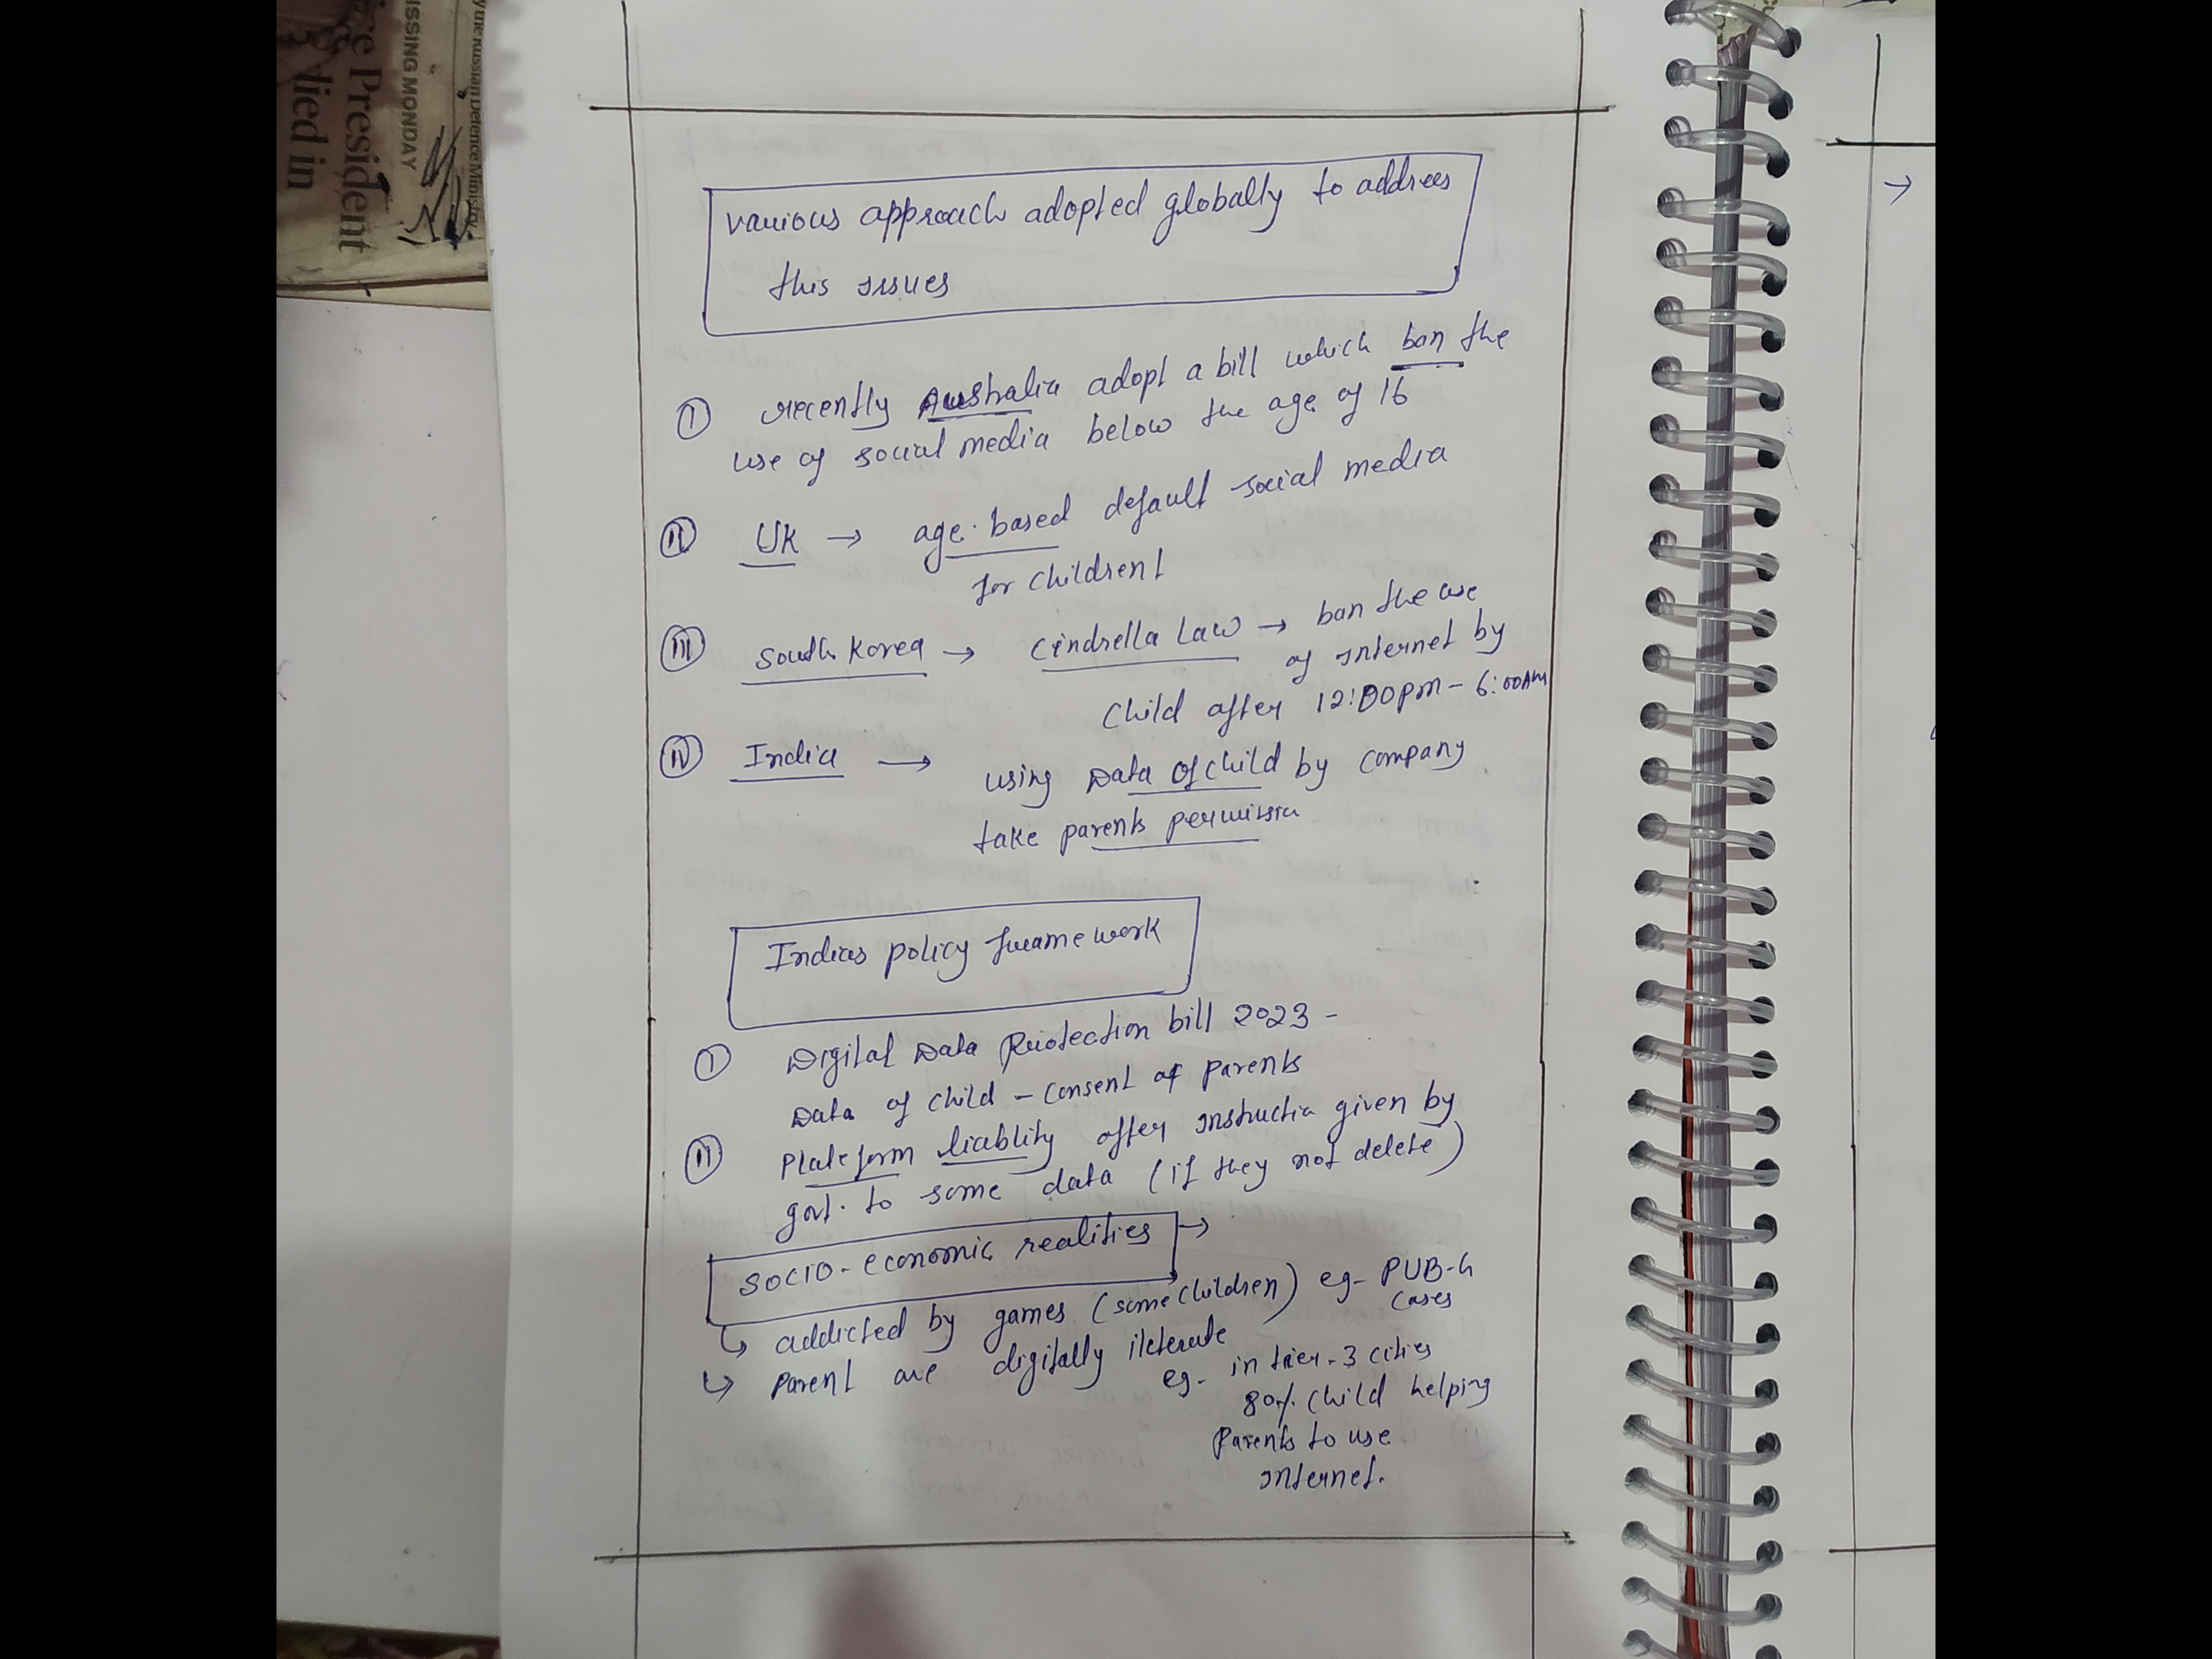 y the Russian Defence Ministry
ISSING MONDAY
re President
lied in
various approach adopted globally to address
this issues
I recently Australia adopt a bill which ban the
use of social media below the age of 16
II UK → age-based default social media
for childrent
III South Korea → Cindrella Law → ban the use
of internet by
child after 12:00pm - 6:00AM
IV India → using Data of child by company
take parents permissin
Indias policy framework
I Digital Data Protection bill 2023 -
Data of child - consent of parents
II Plateform liablity after instructin given by
govt. to some data (if they not delete)
socio-economic realities →
↳ addicted by games (some children) eg- PUB-G
cases
↳ Parent are digitally ileterate
eg- in tier-3 cities
80% child helping
Parents to use
internet.
→